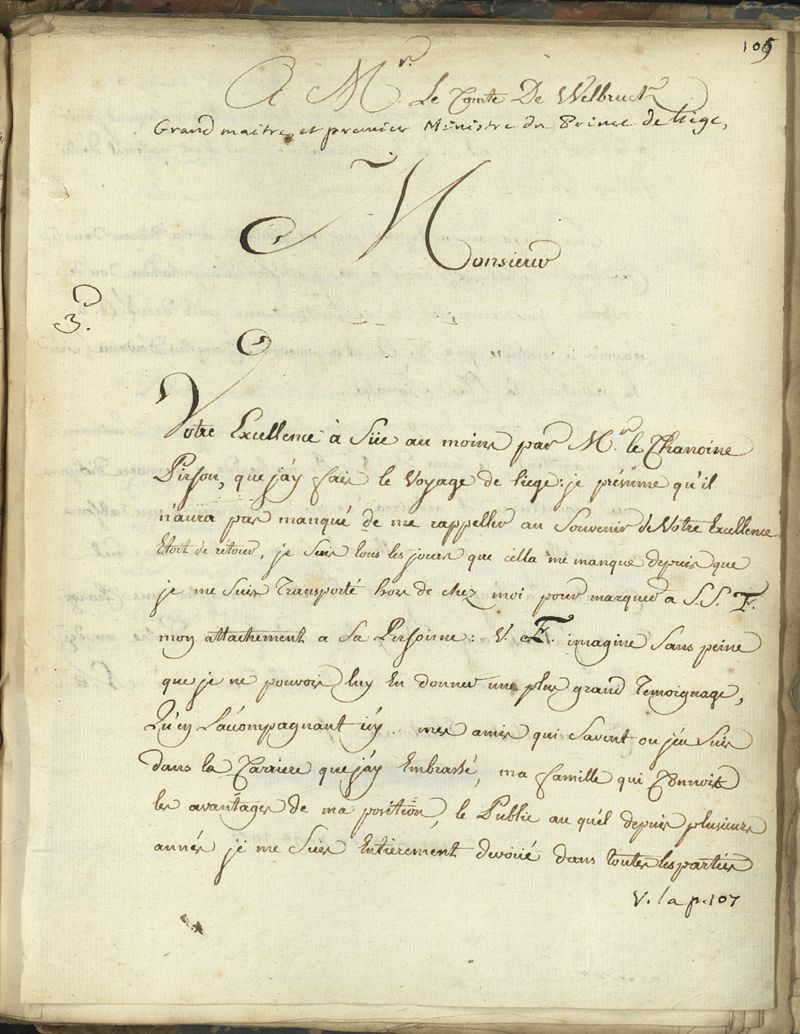 105
A Mr. Le Comte De Welbruck
Grand maitre et premier Ministre du Prince de Liège,
Monsieur
3.
Votre Excellence à Süe au moins par Mr. le Chanoine
Pirson, que j'ay fais le Voyage de Liege: je présume qu'il
n'aura pas manqué de me rappeller au Souvenir de Votre Excellence
Etoit de retour, je Suis tous les jours que cella me manque depuis que
je me Suis Transporté hors de chez moi pour marquer a S.S. E.
mon attachement a Sa Personne: V. E. imagine Sans peine
que je ne pouvois luy En donner une plus grand Temoignage,
Qu'en L'accompagnant icy. mes amis qui Savent ou j'en Suis
dans la Carriere que j'ay Embrassé, ma famille qui Connoit
les avantages de ma position, le Public au quél depuis plusieurs
annés je me Suis Entierement devoüé dans toutes les parties
V. la p. 107